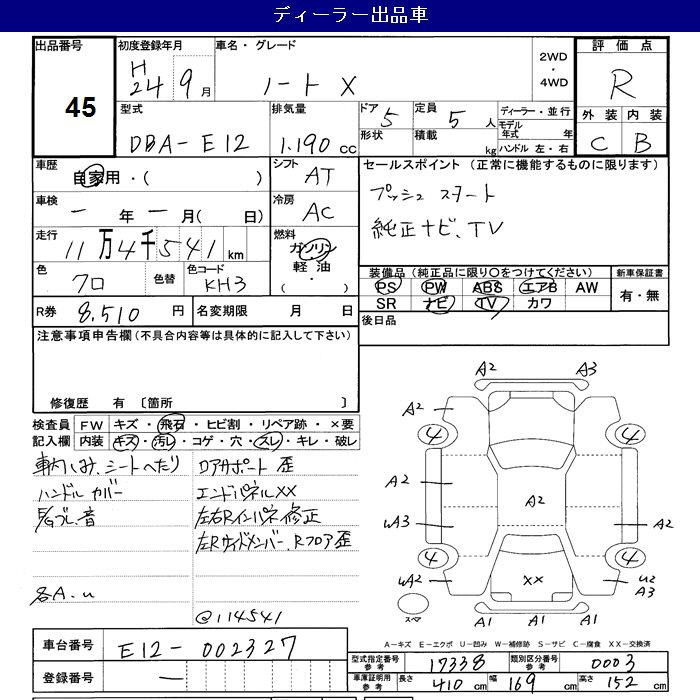 ディーラー出品車
出品番号
45
初度登録年月
H24 9月
車名・グレード
ノート X
2WD
・
4WD
評価点
R
外装 内装
C B
型式
DBA-E12
排気量
1.190 cc
ドア 5
定員 5人
形状
積載 kg
ディーラー・並行
モデル年式 年
ハンドル 左・右
車歴
自家用・( )
シフト
AT
セールスポイント (正常に機能するものに限ります)
プッシュ スタート
純正ナビ、TV
車検
一年一月( 日)
冷房
AC
走行
11万4千541km
燃料
ガソリン
軽油
・( )
色
クロ
色替
色コード
KH3
装備品(純正品に限り○をつけてください)
PS PW ABS エアB AW
SR ナビ TV カワ
新車保証書
有・無
R券 8.510円
名変期限 月 日
後日品
注意事項申告欄(不具合内容等は具体的に記入して下さい)
修復歴 有 〔箇所 〕
検査員記入欄
FW キズ・飛石・ヒビ割・リペア跡・×要
内装 キズ・汚レ・コゲ・穴・スレ・キレ・破レ
車内しみ、シートへたり
ハンドル カバー
音
各A.u
ロアサポート 歪
エンドパネルXX
左右Rインパネ修正
左Rサイドメンバー、Rフロア歪
@114541
A2 A3
A2
4 4
A2
A2
wA3 A2
4 4
wA2 XX u2
A3
スペア
A1 A1 A1
A-キズ E-エクボ U-凹み W-補修跡 S-サビ C-腐食 XX-交換済
車台番号 E12-002327
登録番号 一
型式指定番号 参考 17338
類別区分番号 参考 0003
車庫証明用 参考 長さ 410 cm 幅 169 cm 高さ 152 cm